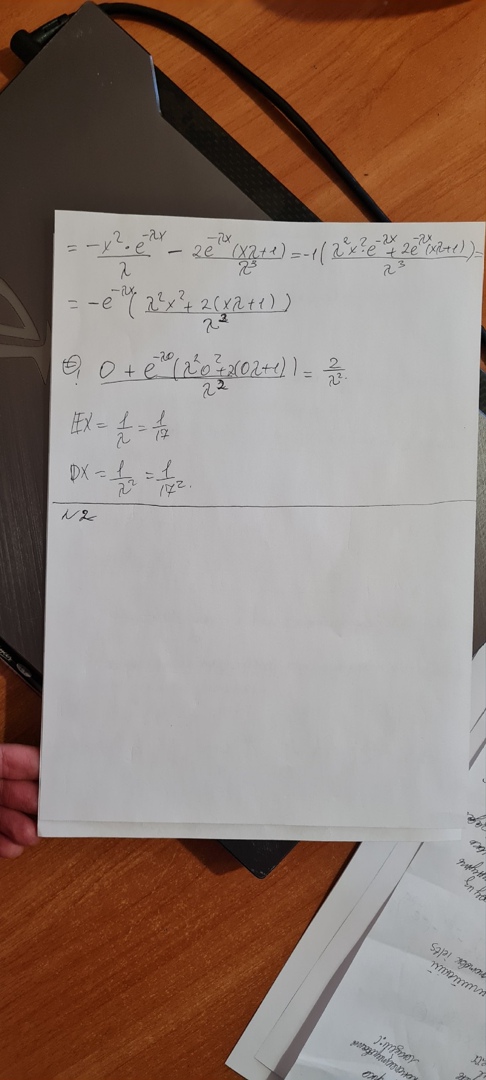 = -x²·e^-λx / λ - 2e^-λx (xλ+1) / λ³ = -1( λ²x²·e^-λx + 2e^-λx (xλ+1) / λ³ ) =
= -e^-λx ( λ²x² + 2(xλ+1) / λ² )
0 + e^-λ0 (λ²0² + 2(0λ+1)) / λ² = 2 / λ².
EX = 1/λ = 1/17
DX = 1/λ² = 1/17².
№2